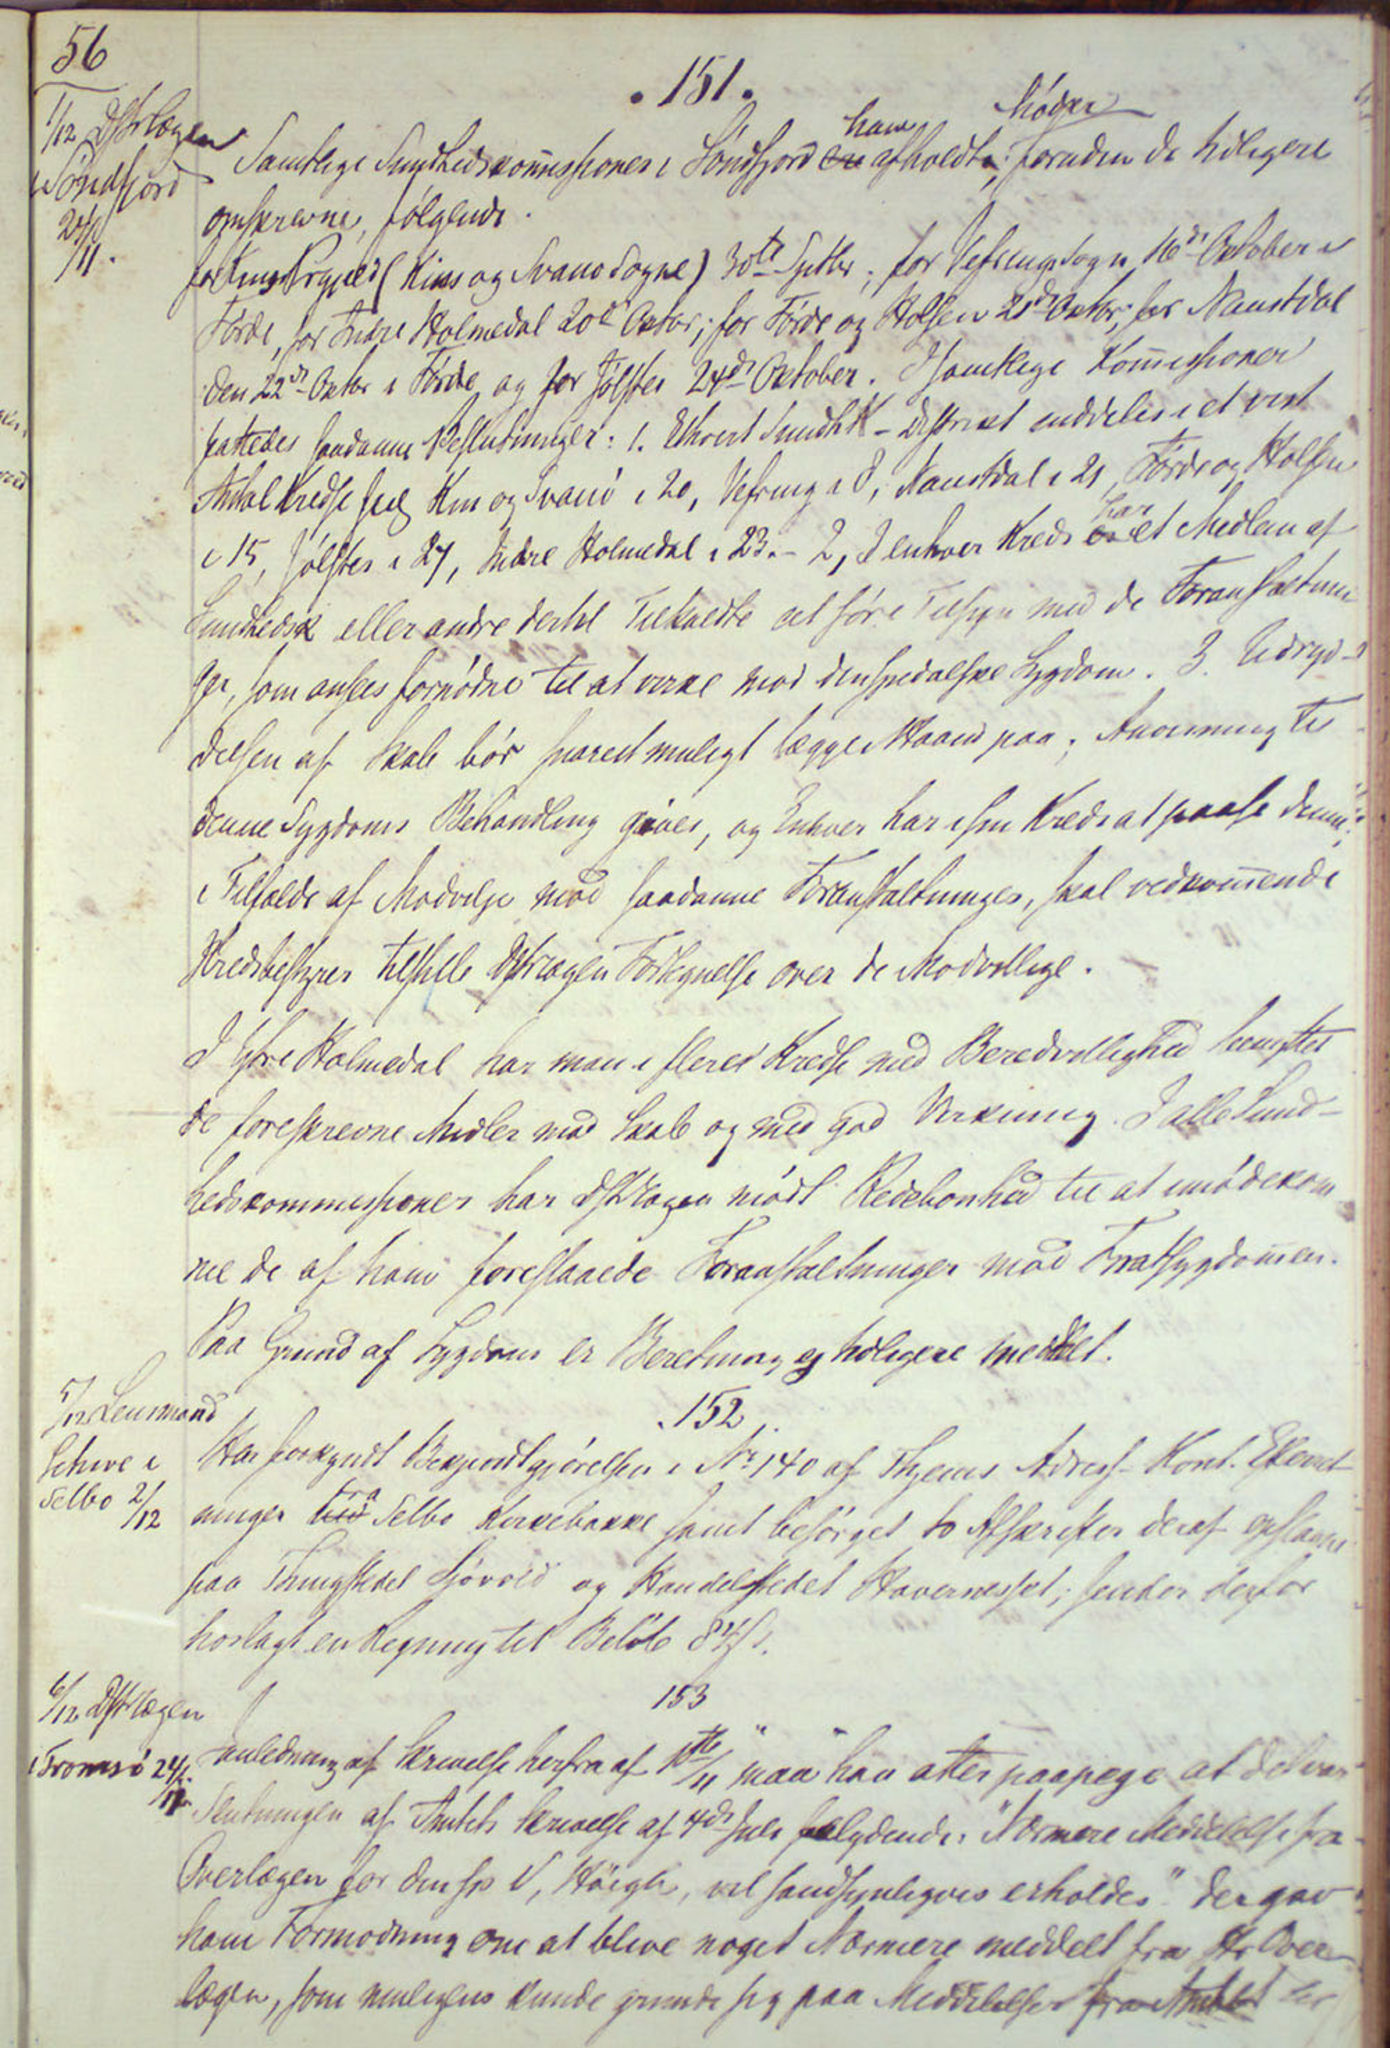 56
.151.
1/12 Dstrlægen
i Söndfjord
24/
/11.
have Möder
Samtlige Sundhedskom̅issioner i Söndfjord afholdt, foruden de tidligere
omskrevne, følgende.
for Kins Prgjeld (Kins og Svanö Sogne) 30te Septbr; for Vefrings Sogn 16de October i
Förde, for Indre Holmedal 20de Octor; for Förde og Holsen 21de Octor; for Naustdal
den 22de Octor i Förde og for Jölster 24de October. I samtlige Kom̅issioner
fattedes saadanne Beslutninger: 1. Ethvert SundhK-District inddeles i et vist
Antal Kredse saa Kin og Svanö i 20, Vefring i 8, Naustdal i 21, Förde og Holsen
har
i 15, Jölster i 27, Indre Holmedal i 23. - 2, I enhver Kreds et Medlem af
Sundhedsk eller andre dertil Tilkaldte at före Tilsyn med de Foranstaltnin
ger, som ansees fornödne til at virke mod den spedalske Sygdom. 3. Udryd-
delsen af Skab bör snarest muligt lægges Haand paa; Anvisning til
denne Sygdoms Behandling gives, og Enhver har i sin Kreds at paase denne;
i Tilfælde af Modvilje mod saadanne Foranstaltninger, skal vedkom̅ende
Kredsbestyrer tilstille Dstrlægen Fortegnelse over de Modvillige.
I Ytre Holmedal har man i flere Kredse med Beredvillighed benyttet
de foreskrevne Midler mod Skab og med god Virkning. I alle Sund-
hedskommissioner har Dstrlægen mödt Redebonhed til at imödekom
me de af ham foreslaaede Foranstaltninger mod Hrdsygdom̅en.
Paa Grund af Sygdom er Beretning ej tidligere meddelt.
5/12 Lensmand
.152.
i
Selbo 2/12
Har forkyndt Bekjendtgjörelsen i Nr 140 af Thjems Adress-Kont. Efterret
fra
ninger Selbo Kirkebakke samt besörget to Afskrifter deraf opslaaede
paa Thingstedet og Handelstedet; sender derfor
hoslagt en Regning til Belöb
6/12 Dstrlægen
153
i Tromsö 24/
/11.
I Anledning af Skrivelse herfra af 10de/11 "maa" han atter paapege at det var
Slutningen af Amtets Skrivelse af 4de Juli saalydende: "Nærmere Meddelelse fra
Overlægen for den sp. S, Höegh, vil sandsynligvis erholdes" der gav
ham Formodning om at blive noget Nærmere meddelt fra Hr Over
lægen, som muligens kunde grunde sig paa Meddelelser fra Amtet